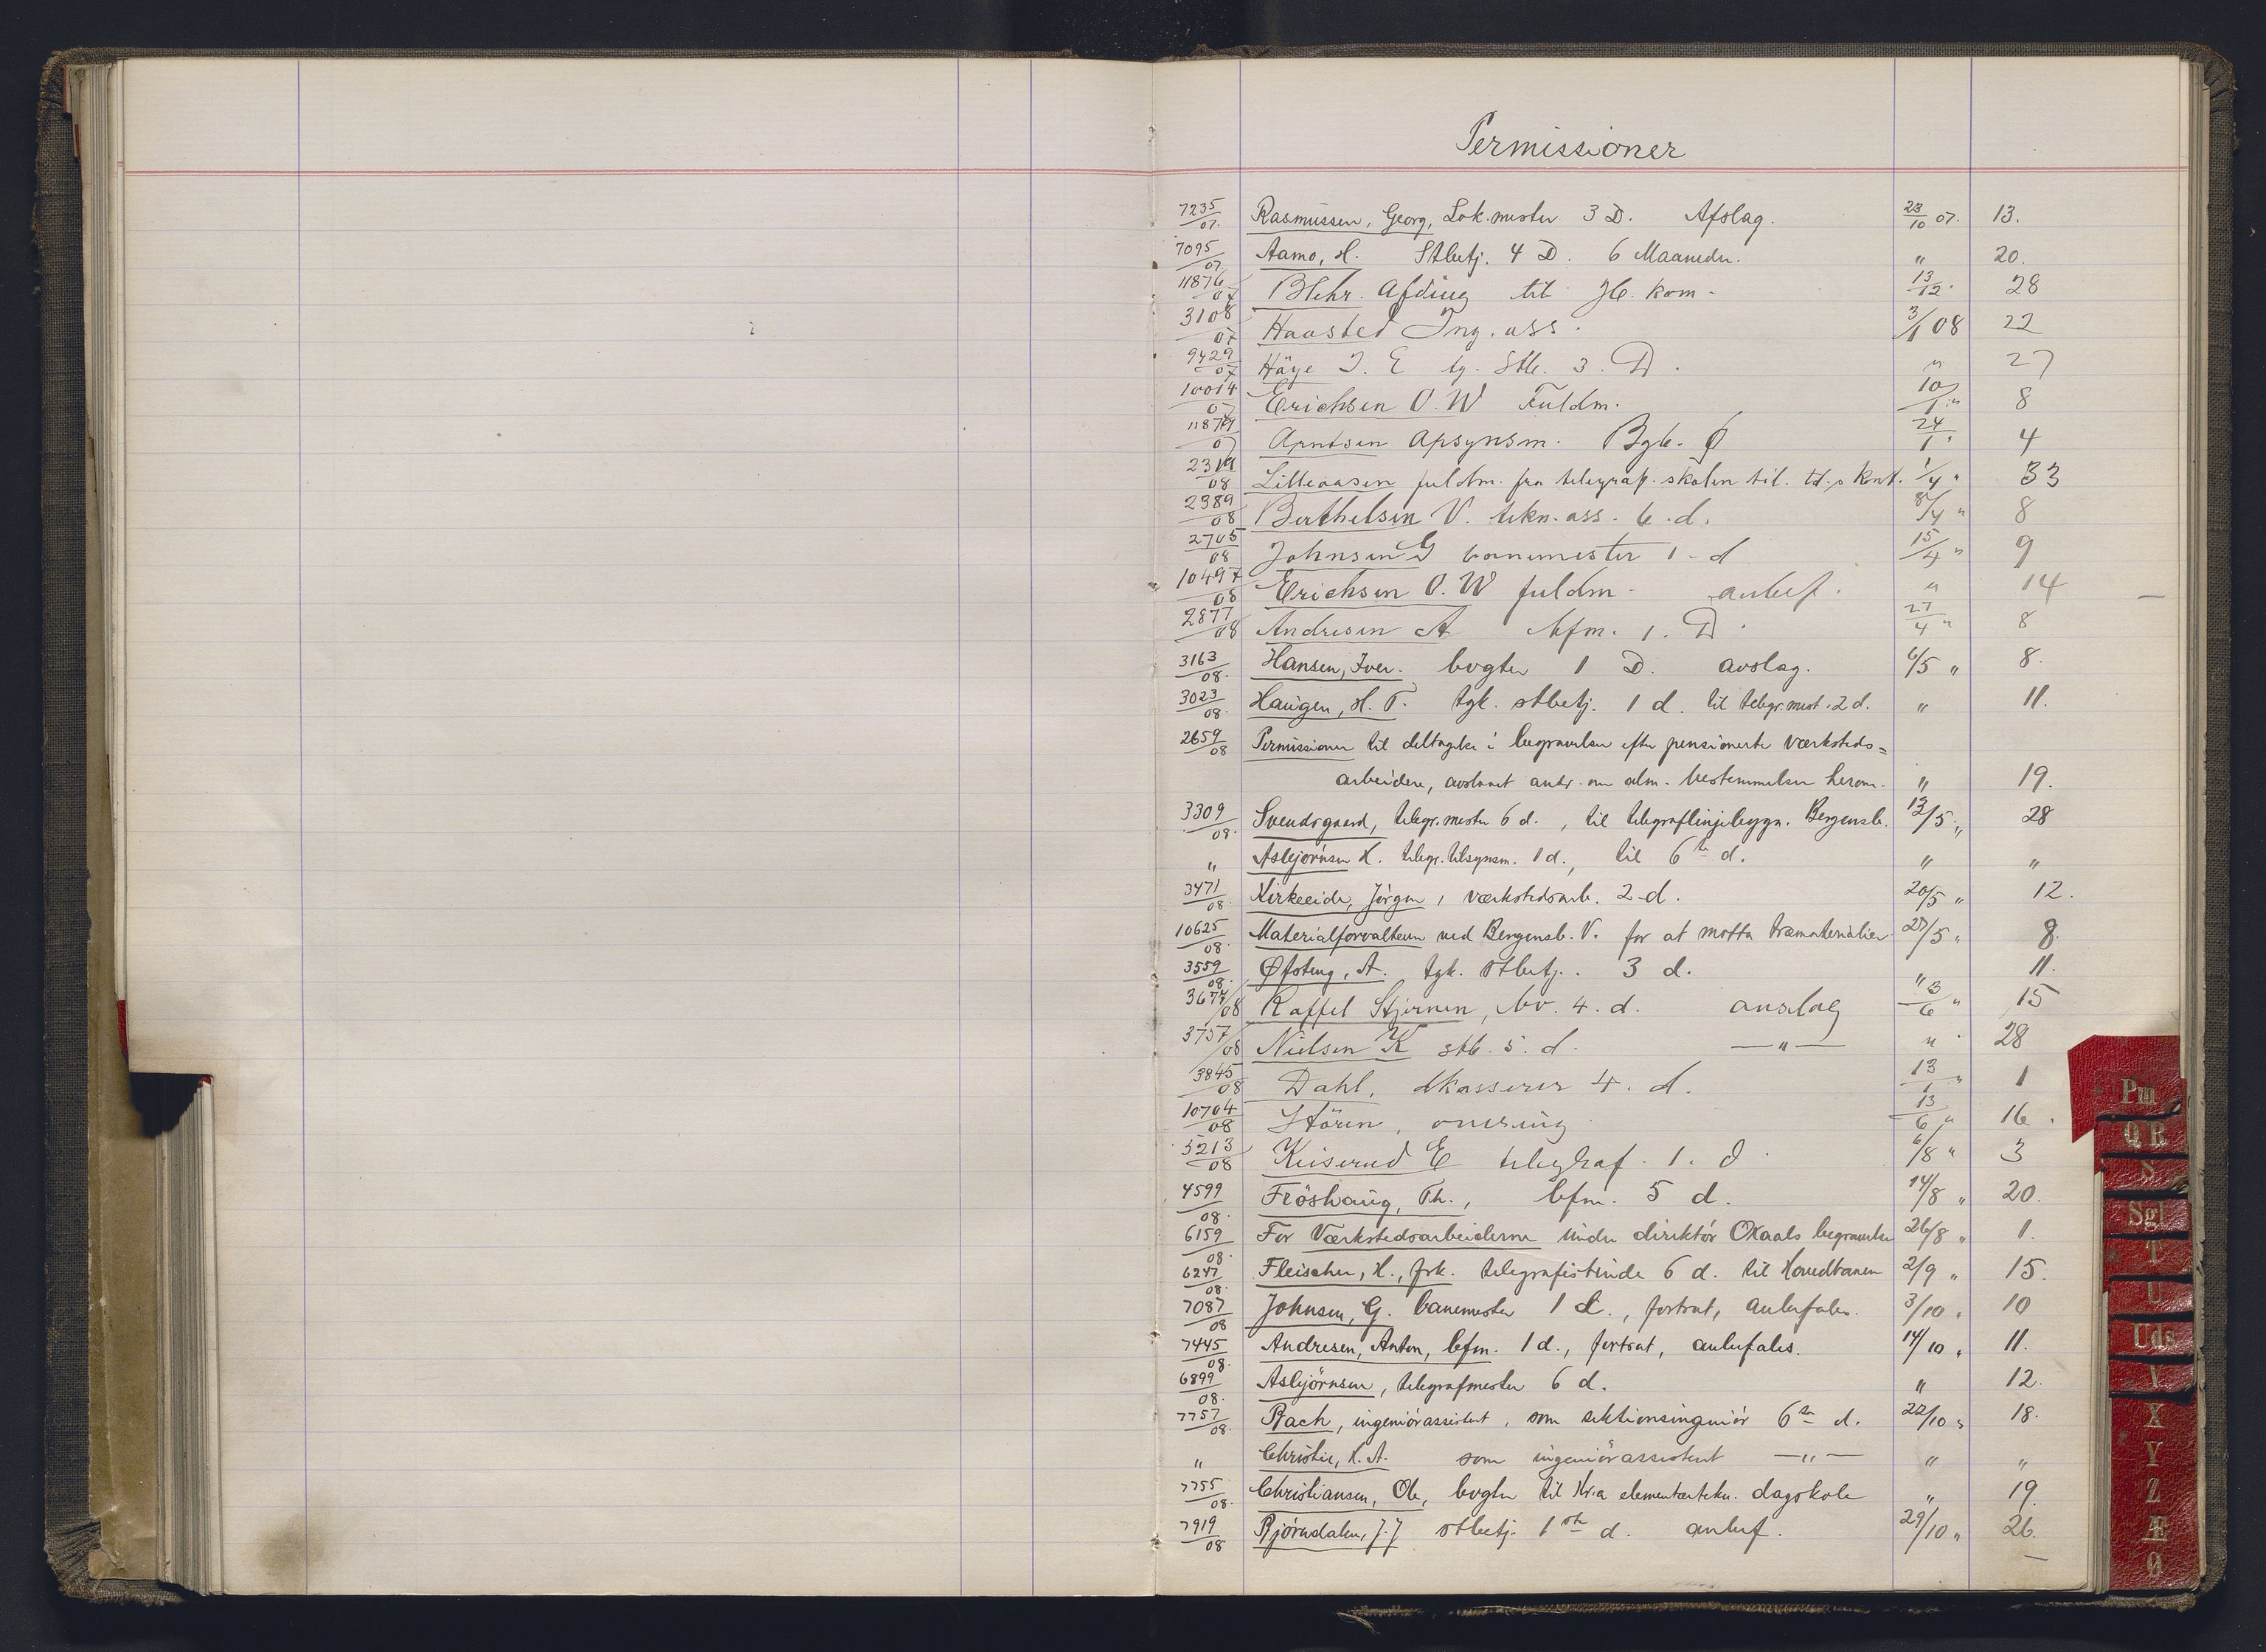 Permissioner
7235/07. Rasmussen, Georg, Lok.mester 3 D. Afslag. 23/10 07. 13.
7095/07 Aamo, H. Stbetj. 4 D. 6 Maaneder. " 20.
11876/07 Blehr. Afding til Jb. kom- 13/12" 28
3108/07 Haasted Ing. ass. 3/1 08 22
9429/07 Häye J. E tg. Stb. 3. D. " 27
10014/07 Erichsen O. W Fuldm. 10/1 " 8
11879/07 Arntsen Opsynsm. Bgb. Ø 24/1 " 4
2319/08 Lilleaasen fuldm. fra telegraf. skolen til. td.s kont. 1/4 " 33
2389/08 Berthelsen V. tekn. ass. 6. d. 8/4 " 8
2705/08 Johnsen G banemester 1 - d 15/4 " 9
10497/08 Erichsen O. W fuldm. anbef. " 14
2877/08 Andresen A bfm. 1. D. 27/4 " 8
3163/08. Hansen, Iver. bvgter 1 D. avslag. 6/5 " 8.
3023/08. Haugen, H. T. tgk. stbetj. 1 d. til telegr.mest. 2 d. " 11.
2659/08 Permissioner til deltagelse i begravelser efter pensionerte værksteds=
arbeidere, avslaaet andr. om alm. bestemmelser herom. " 19.
3309/08. Svendsgaard, telegr.mester 6 d., til telegraflinjebygn. Bergensb. 13/5 " 28
" Asbjørnsen H. telegr. tilsynsm. 1 d., til 6te d. " "
3471/08 Kirkeeide, Jörgen, værkstedsarb. 2 d. 20/5 " 12.
10625/08. Materialforvalteren ved Bergensb. V. for at motta træmaterialier 27/5 " 8.
3559/08. Øfsteng, A. tgk. stbetj. 3 d. " 11.
3677/08 Kaffel Stjernen, bv. 4. d. avslag 3/6 " 15
3757/08 Nielsen K stb. 5. d. — " — " 28
3845/08 Dahl, dkasserer 4. d. 13/1 " 1
10704/08 Stören, overing 13/6 " 16.
5213/08 Keiserud E telegraf. 1. d 6/8 " 3
4599/08. Fröshaug, Th., bfm. 5 d. 14/8 " 20.
6159/08. For Værkstedsarbeiderne under direktör Okaals begravelse 26/8 " 1.
6247/08. Fleischer, H., frk. telegrafistinde 6 d. til Hovedbanen 2/9 " 15.
7087/08 Johnsen, G. banemester 1 d., fortsat, anbefales. 3/10 " 10
7445/08. Andresen, Anton, bfm. 1 d., fortsat, anbefales. 14/10 " 11.
6899/08. Asbjörnsen, telegrafmester 6 d. " 12.
7757/08. Rach, ingeniörassistent, som sektionsingeniör 6te d. 22/10 " 18.
" Christie, H. A. som ingeniörassistent — " — " "
7755/08. Christiansen, Ole, bvgter til Kr.a elementærtekn. dagskole " 19.
7919/08 Bjørndalen, J. J stbetj. 1ste d. anbef. 29/10 " 26.
Pm
Q R
S
Sgl
T
U
Uds
V
X
Y
Z
Æ
Ø